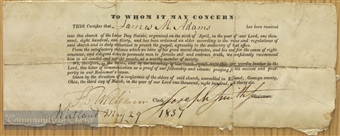 TO WHOM IT MAY CONCERN:
THIS Certifies that James M. Adams has been received
into this church of the Latter Day Saints, organized on the sixth of April, in the year of our Lord, one thousand, eight hundred, and thirty, and has been ordained an elder according to the rules and regulations of
said church and is duly authorized to preach the gospel, agreeably to the authority of that office.
From the satisfactory evidence which we have of his good moral character, and his zeal for the cause of righteousness, and diligent desire to persuade men to forsake evil and embrace truth, we confidently recommend
him to all candid and upright people as a worthy member of society.
We, therefore, in the name, and by the authority of this church, grant unto this, our worthy brother in the
Lord, this letter of commendation as a proof of our fellowship and esteem: praying for his success and prosperity in our Redeemer's cause.
Given by the direction of a conference of the elders of said church, assembled in Kirtland, Geauga county,
Ohio, the third day of March, in the year of our Lord one thousand, eight hundred, and thirty six.
Joseph Smith
Kirtland May 29 1837